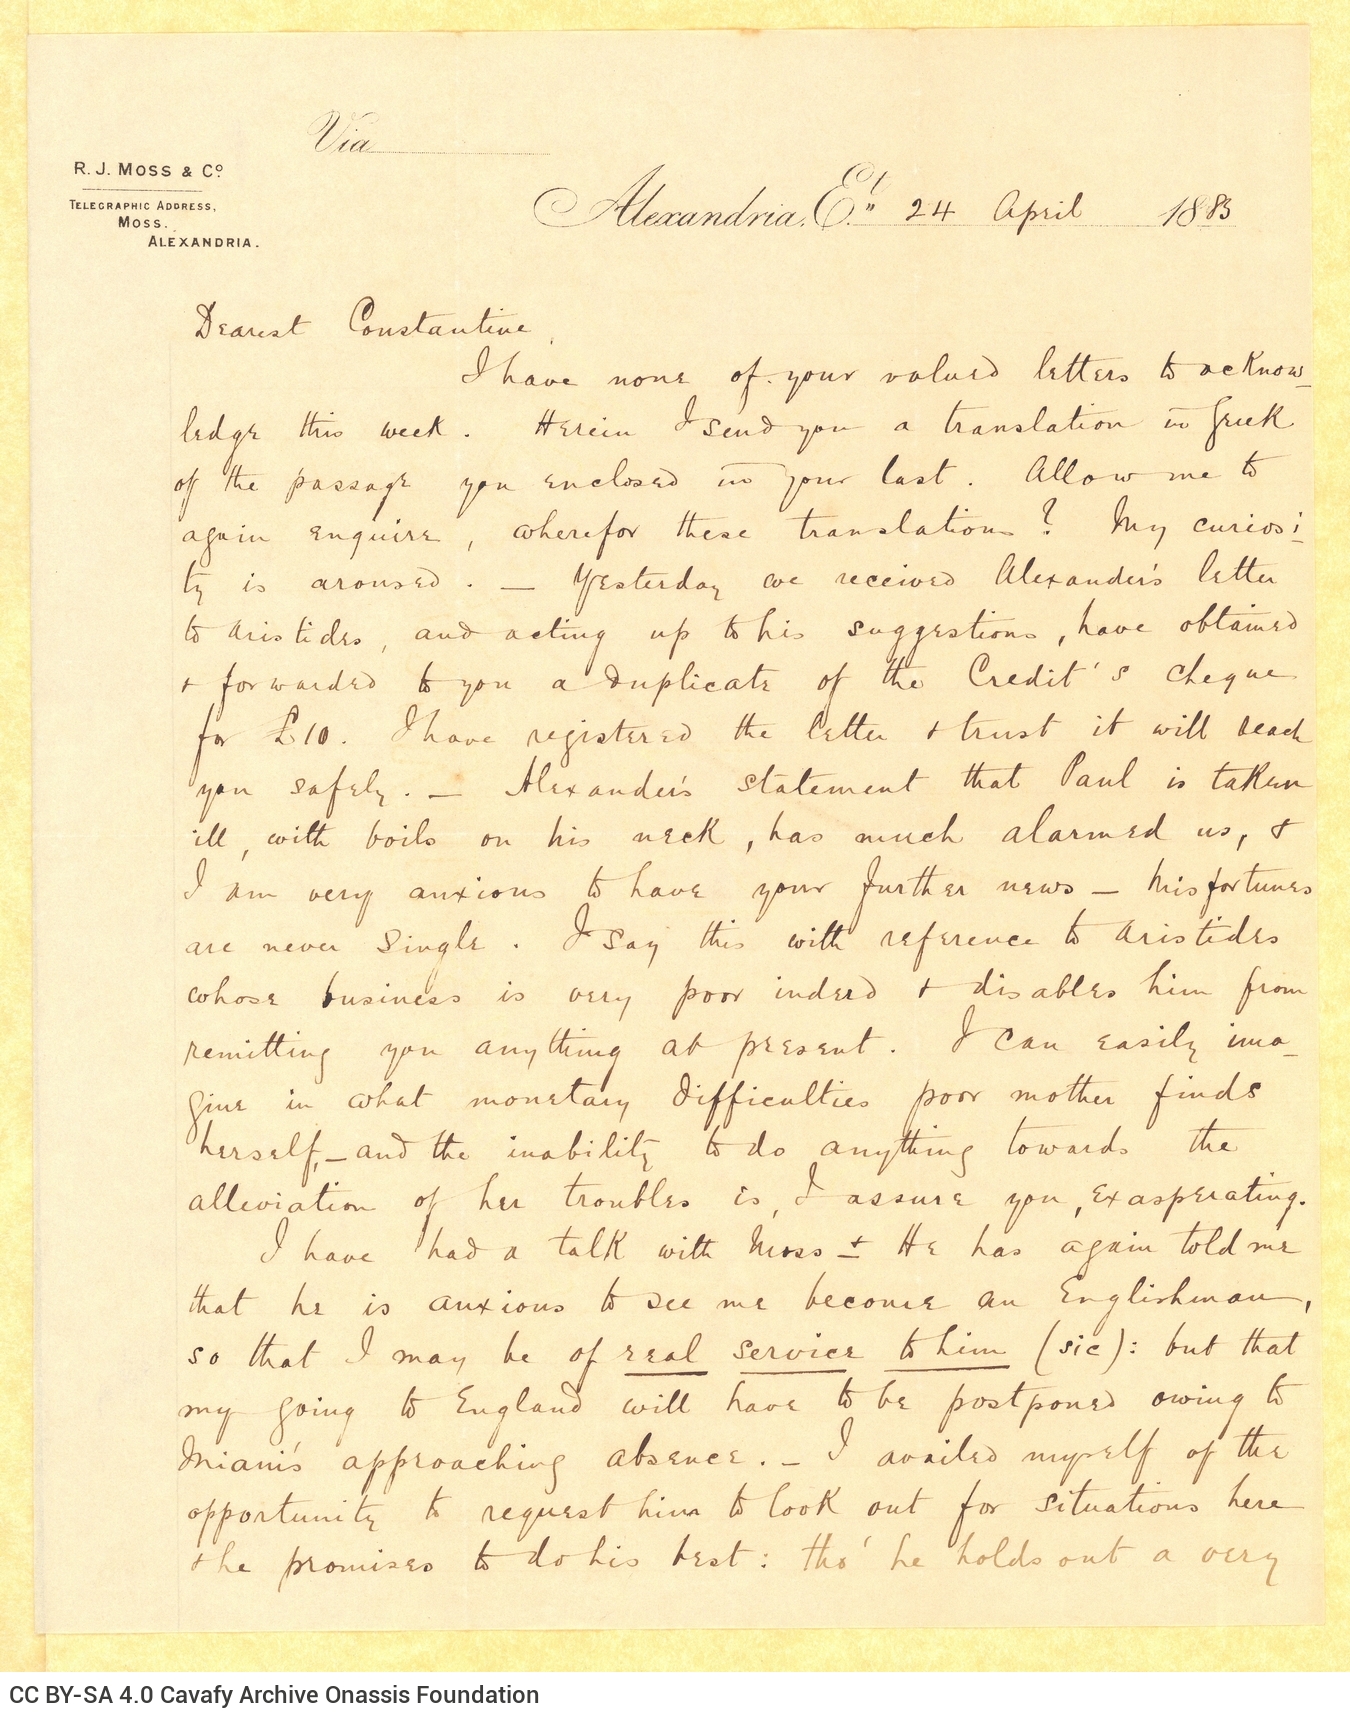 Via
R. J. MOSS & Co.
TELEGRAPHIC ADDRESS,
MOSS.
ALEXANDRIA.
Alexandria, Et. 24 April 1883
Dearest Constantine,
I have none of your valued letters to acknow-
ledge this week. Herein I send you a translation in Greek
of the passage you enclosed in your last. Allow me to
again enquire, wherefor these translations? My curiosi-
ty is aroused. — Yesterday we received Alexander's letter
to Aristides, and acting up to his suggestions, have obtained
& forwarded to you a duplicate of the Credit's cheque
for £10. I have registered the letter & trust it will reach
you safely. — Alexander's statement that Paul is taken
ill, with boils on his neck, has much alarmed us, &
I am very anxious to have your further news — Misfortunes
are never single. I say this with reference to Aristides
whose business is very poor indeed & disables him from
remitting you anything at present. I can easily ima-
gine in what monetary difficulties poor mother finds
herself, — and the inability to do anything towards the
alleviation of her troubles is, I assure you, exasperating.
I have had a talk with Moss ± He has again told me
that he is anxious to see me become an Englishman,
so that I may be of real service to him (sic): but that
my going to England will have to be postponed owing to
Miani's approaching absence. — I availed myself of the
opportunity to request him to look out for situations here
& he promises to do his best: tho' he holds out a very
CC BY-SA 4.0 Cavafy Archive Onassis Foundation